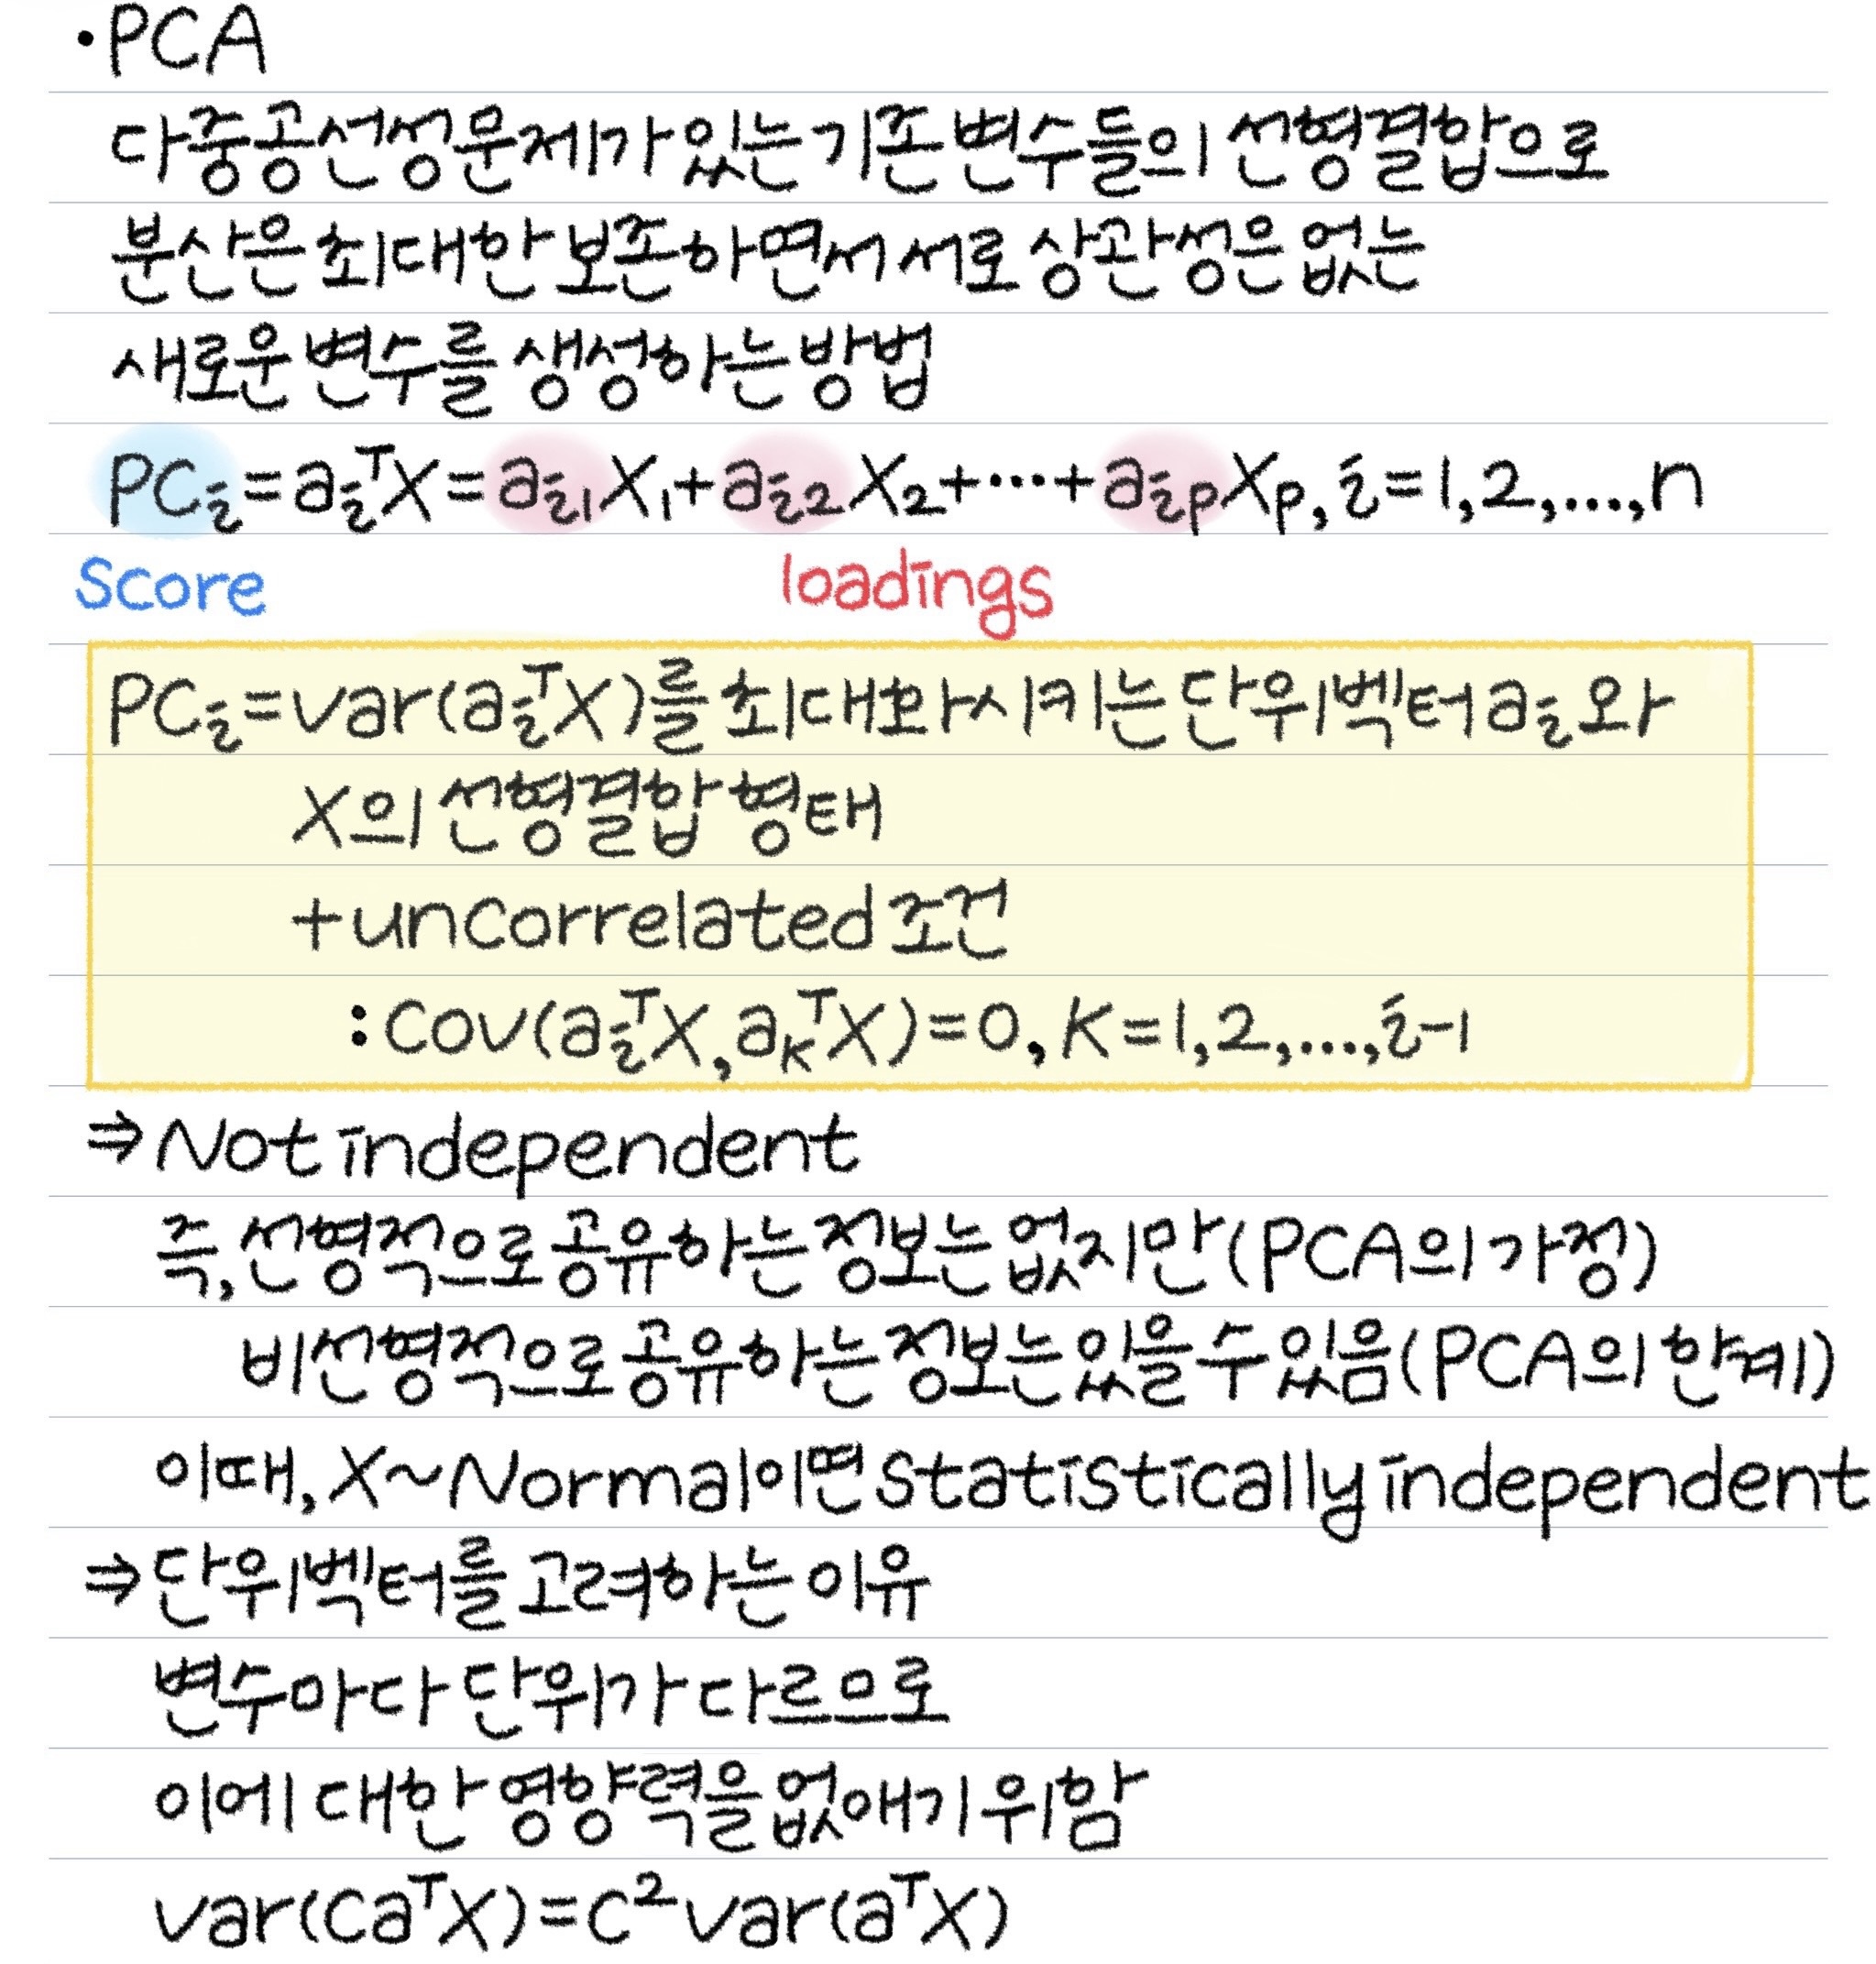 •PCA
다중공선성문제가 있는 기존 변수들의 선형결합으로
분산은 최대한 보존하면서 서로 상관성은 없는
새로운 변수를 생성하는 방법
PCᵢ=aᵢᵀX=aᵢ₁X₁+aᵢ₂X₂+⋯+aᵢₚXₚ, i=1,2,...,n
Score loadings
PCᵢ=var(aᵢᵀX)를 최대화시키는 단위벡터 aᵢ와
X의 선형결합 형태
+uncorrelated 조건
:Cov(aᵢᵀX,aₖᵀX)=0, K=1,2,...,i-1
⇒Not independent
즉, 선형적으로 공유하는 정보는 없지만(PCA의 가정)
비선형적으로 공유하는 정보는 있을 수 있음(PCA의 한계)
이때, X~Normal이면 Statistically independent
⇒단위벡터를 고려하는 이유
변수마다 단위가 다르므로
이에 대한 영향력을 없애기 위함
var(CaᵀX)=C²var(aᵀX)